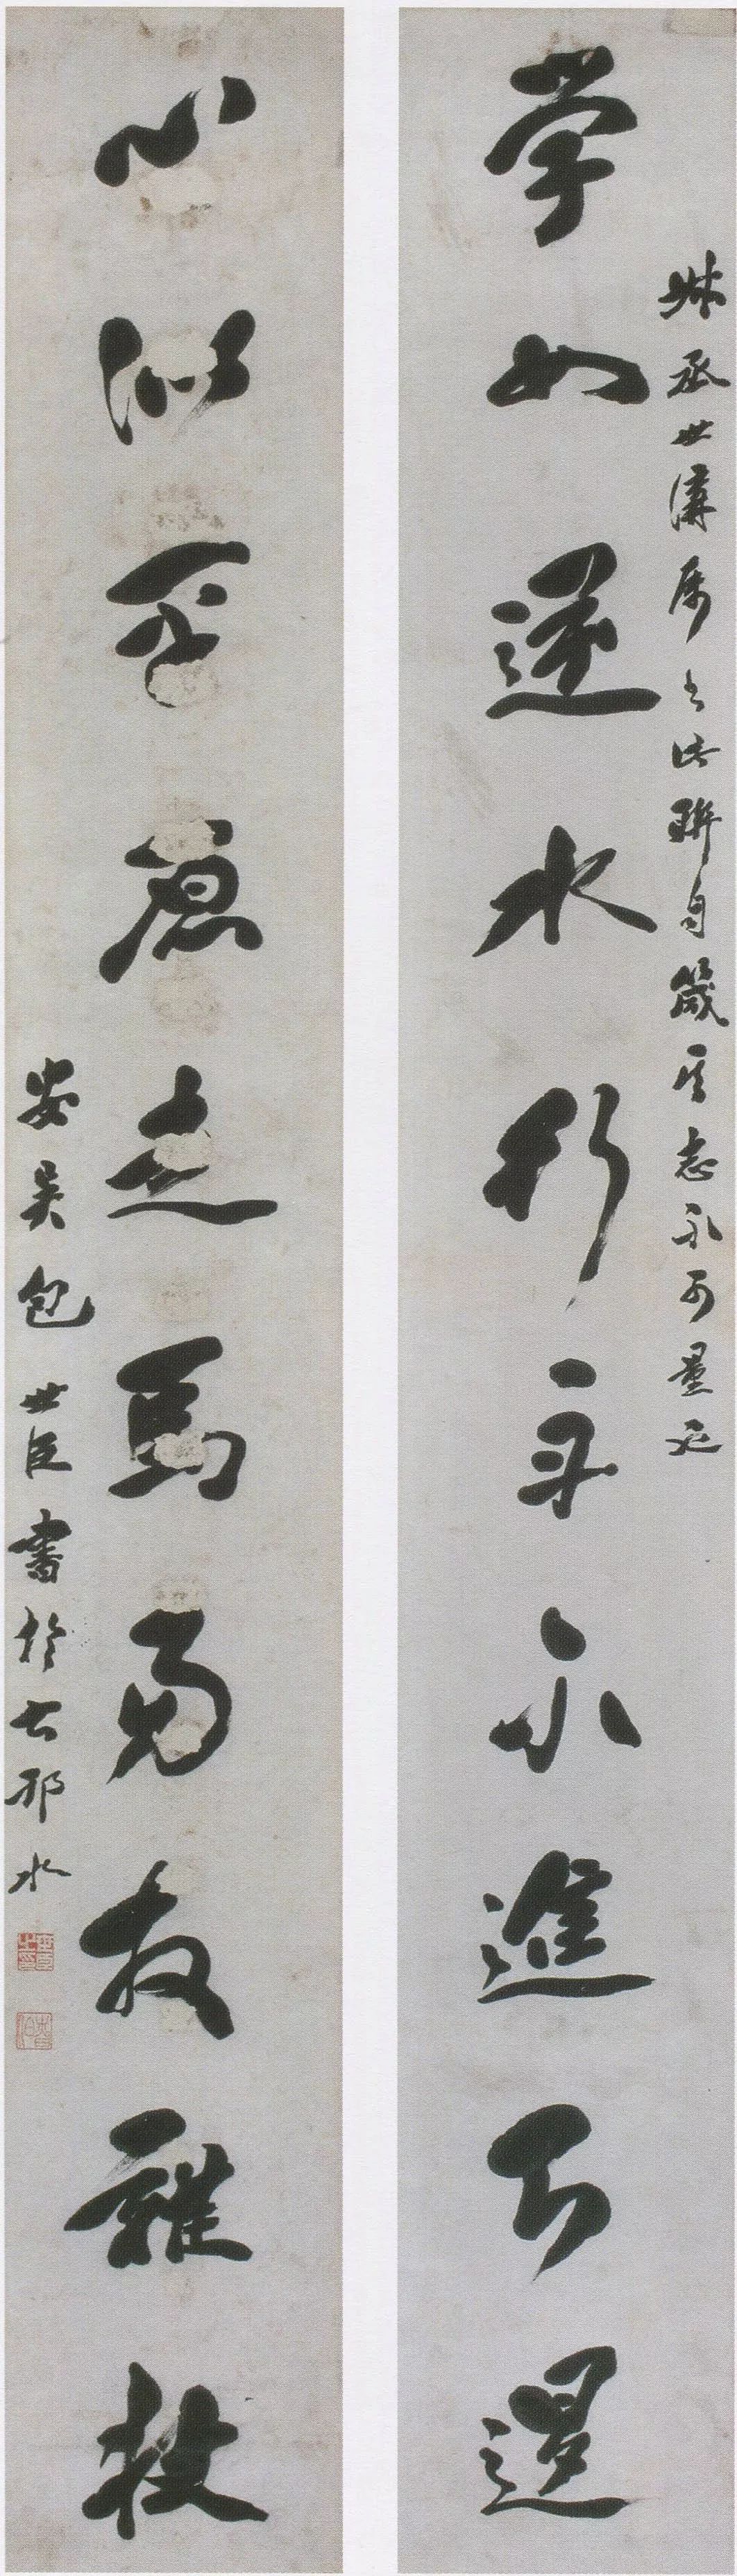 叔丞世講属書此聯自箴其志不可量也
學如逆水行舟不進則退
心似平原走馬易放難收
安吳包世臣書於古邗水